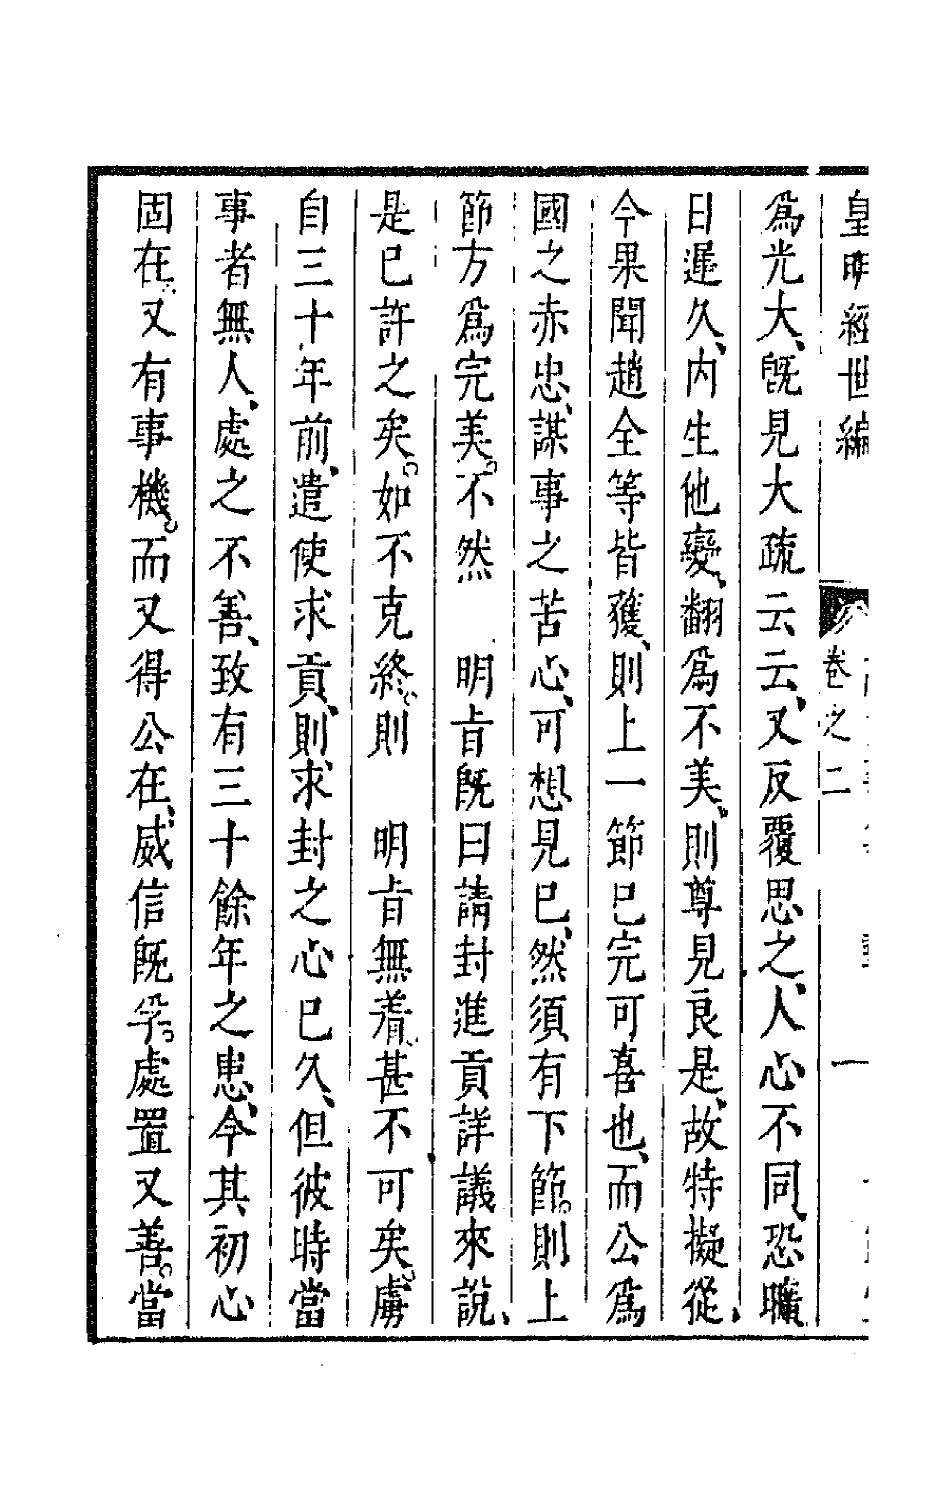 皇明經世編 卷之二 一
為光大、既見大疏云云、又反覆思之、人心不同、恐曠
日遲久、內生他變、翻為不美、則尊見良是、故特擬從、
今果聞趙全等皆獲、則上一節已完可喜也、而公為
國之赤忠、謀事之苦心、可想見已、然須有下節。則上
節方為完美。不然 明旨既曰請封進貢詳議來說、
是已許之矣。如不克終。則 明旨無着、甚不可矣、虜
自三十年前、遣使求貢、則求封之心已久、但彼時當
事者無人、處之不善、致有三十餘年之患、今其初心
固在。又有事機。而又得公在、威信既孚。處置又善。當